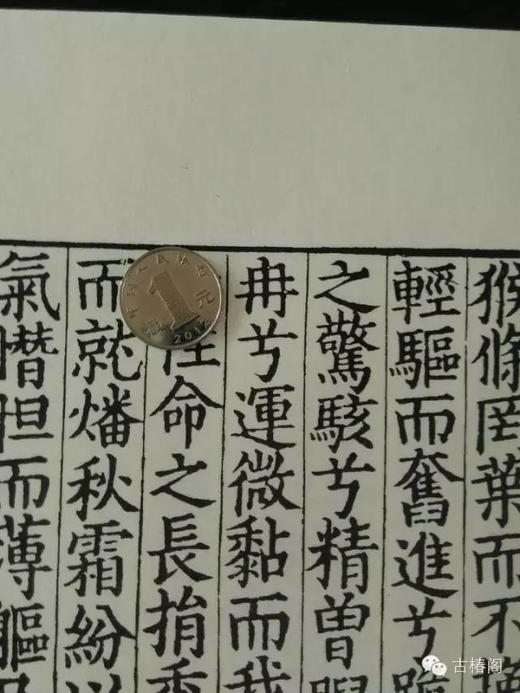 猴條罔葉而不挽
輕驅而奮進兮
之驚駭兮精曽睨
冉兮運微黏而我
性命之長捐委
而就燔秋霜紛以
氣憯怛而薄軀
中国人民银行
1元
2017
古椿阁